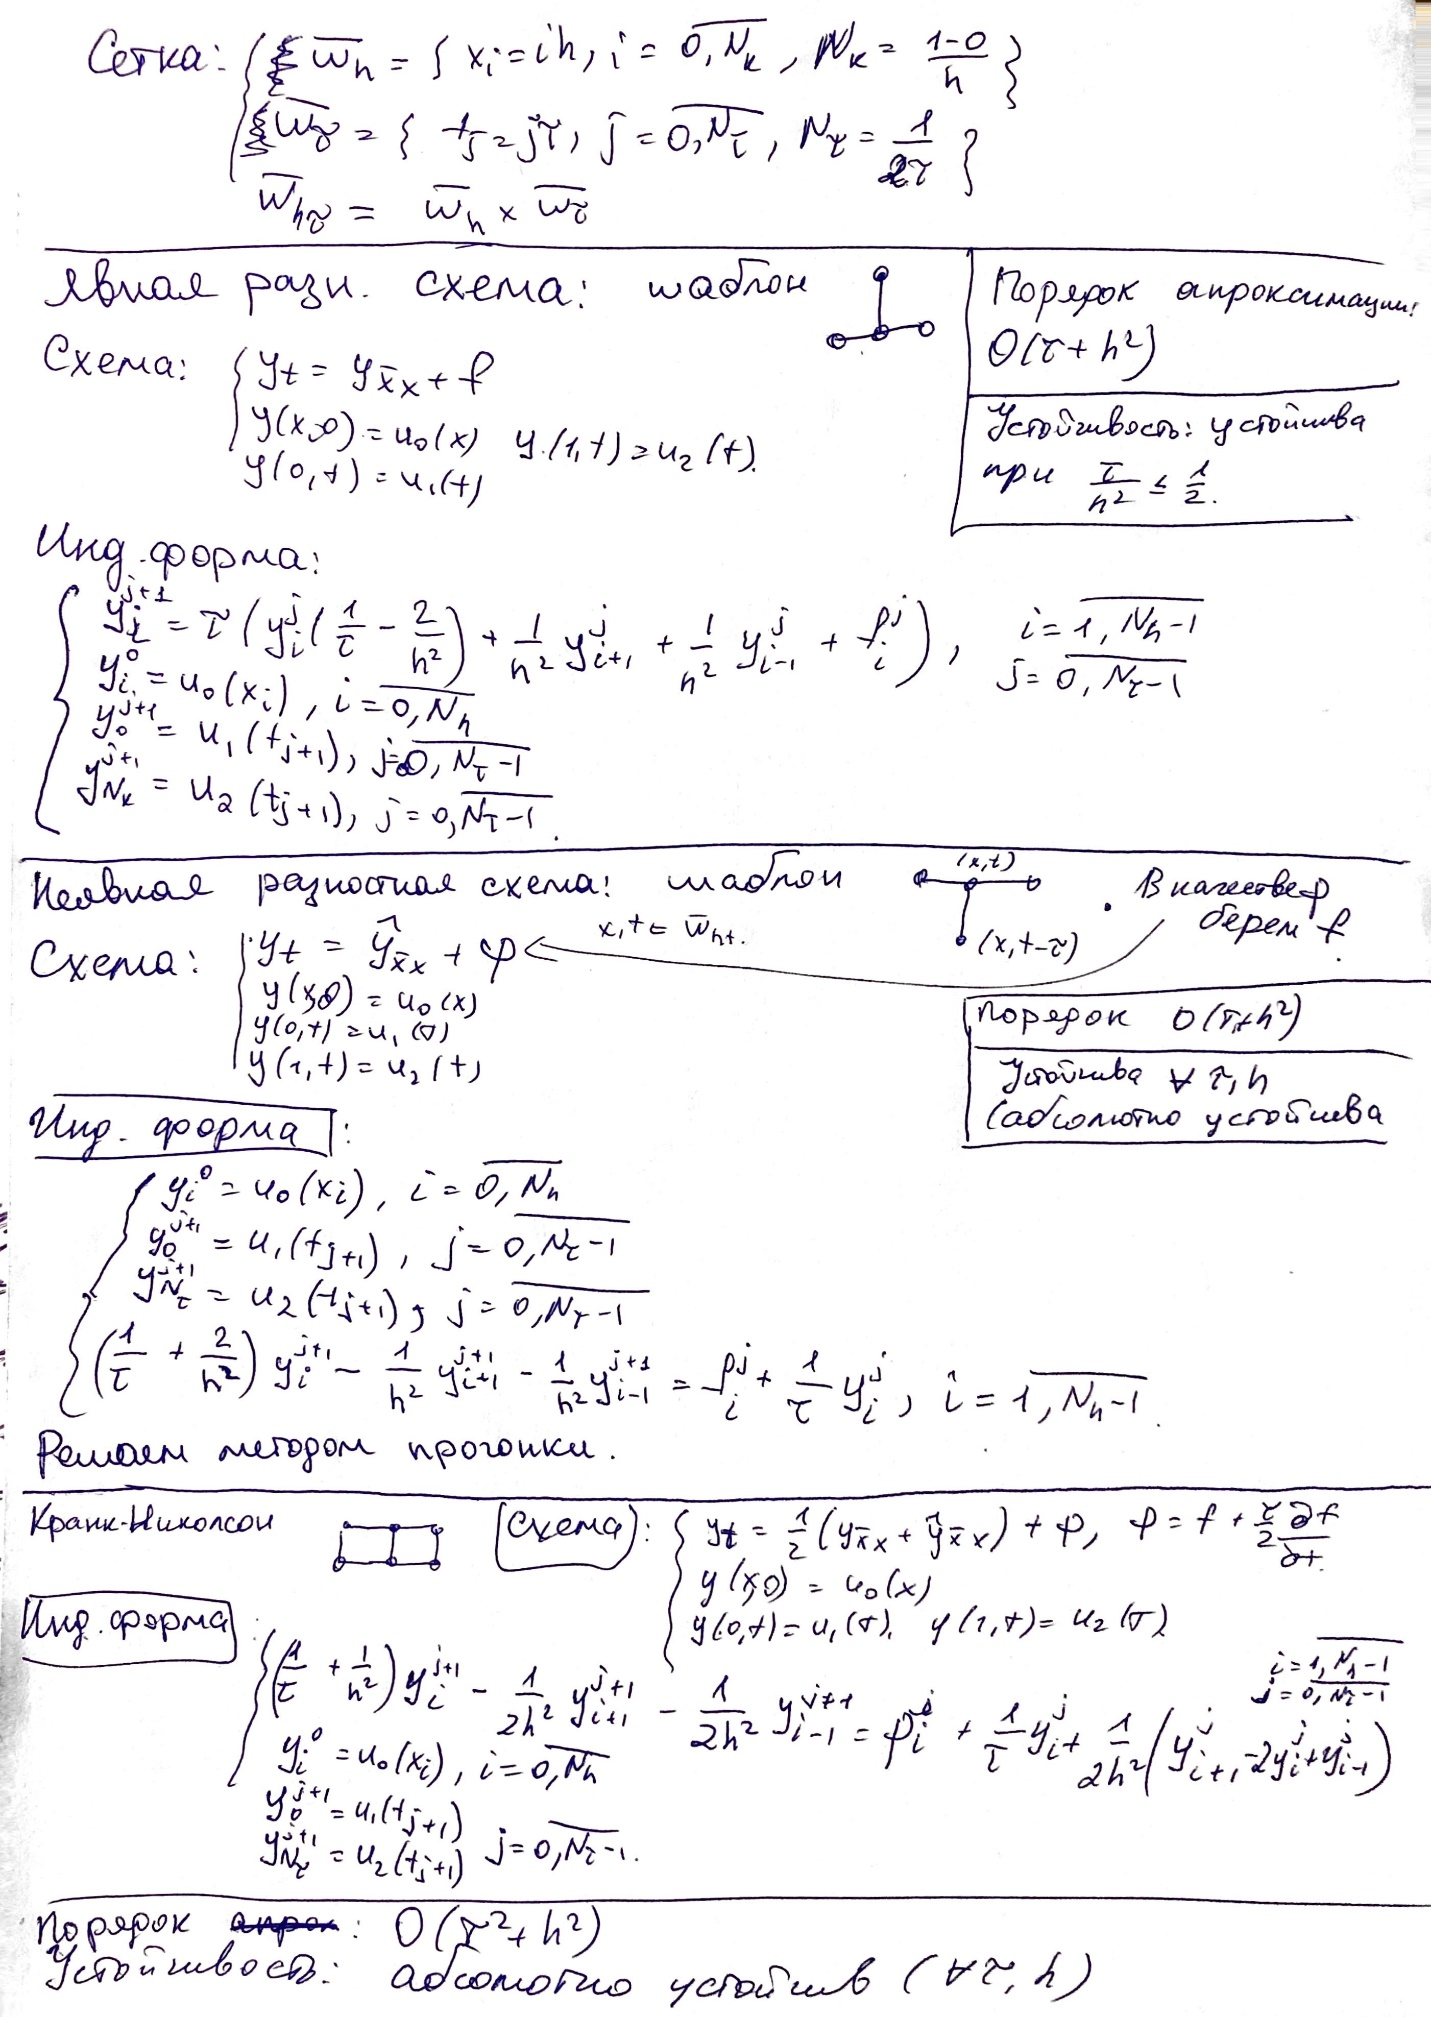 Сетка: { ω̄_h = { x_i = ih, i = \overline{0, N_k}, N_k = \frac{1-0}{h} }
ω̄_τ = { t_j = jτ, j = \overline{0, N_τ}, N_τ = \frac{1}{2τ} }
ω̄_{hτ} = ω̄_h × ω̄_τ
Явная разн. схема: шаблон
Порядок апроксимации:
O(τ + h²)
Устойчивость: устойчива
при \frac{τ}{h²} ≤ \frac{1}{2}.
Схема: { y_t = y_{x̄x} + f
y(x,0) = u_0(x) y(1,t) = u_2(t).
y(0,t) = u_1(t)
Инд. форма:
{ y_i^{j+1} = τ ( y_i^j ( \frac{1}{τ} - \frac{2}{h²} ) + \frac{1}{h²} y_{i+1}^j + \frac{1}{h²} y_{i-1}^j + f_i^j ), i = \overline{1, N_h-1}
j = \overline{0, N_τ-1}
y_i^0 = u_0(x_i), i = \overline{0, N_h}
y_0^{j+1} = u_1(t_{j+1}), j = \overline{0, N_τ-1}
y_{N_k}^{j+1} = u_2(t_{j+1}), j = \overline{0, N_τ-1}.
Неявная разностная схема: шаблон (x,t)
(x, t-τ)
В качестве φ
берем f.
Схема: { y_t = ŷ_{x̄x} + φ x, t ∈ ω̄_{ht}.
y(x,0) = u_0(x)
y(0,t) = u_1(t)
y(1,t) = u_2(t)
Порядок O(τ+h²)
Устойчива ∀ τ, h
(абсолютно устойчива
Инд. форма:
{ y_i^0 = u_0(x_i), i = \overline{0, N_h}
y_0^{j+1} = u_1(t_{j+1}), j = \overline{0, N_τ-1}
y_{N_τ}^{j+1} = u_2(t_{j+1}), j = \overline{0, N_τ-1}
( \frac{1}{τ} + \frac{2}{h²} ) y_i^{j+1} - \frac{1}{h²} y_{i+1}^{j+1} - \frac{1}{h²} y_{i-1}^{j+1} = f_i^j + \frac{1}{τ} y_i^j, i = \overline{1, N_h-1}.
Решаем методом прогонки.
Кранк-Николсон
Схема: { y_t = \frac{1}{2} ( y_{x̄x} + ŷ_{x̄x} ) + φ, φ = f + \frac{τ}{2} \frac{∂f}{∂t}.
y(x,0) = u_0(x)
y(0,t) = u_1(t). y(1,t) = u_2(t)
Инд. форма:
{ ( \frac{1}{τ} + \frac{1}{h²} ) y_i^{j+1} - \frac{1}{2h²} y_{i+1}^{j+1} - \frac{1}{2h²} y_{i-1}^{j+1} = φ_i^j + \frac{1}{τ} y_i^j + \frac{1}{2h²} ( y_{i+1}^j - 2y_i^j + y_{i-1}^j )
i = \overline{1, N_h-1}
j = \overline{0, N_τ-1}
y_i^0 = u_0(x_i), i = \overline{0, N_h}
y_0^{j+1} = u_1(t_{j+1})
y_{N_τ}^{j+1} = u_2(t_{j+1}) j = \overline{0, N_τ-1}.
Порядок : O(τ² + h²)
Устойчивость: абсолютно устойчив (∀ τ, h)